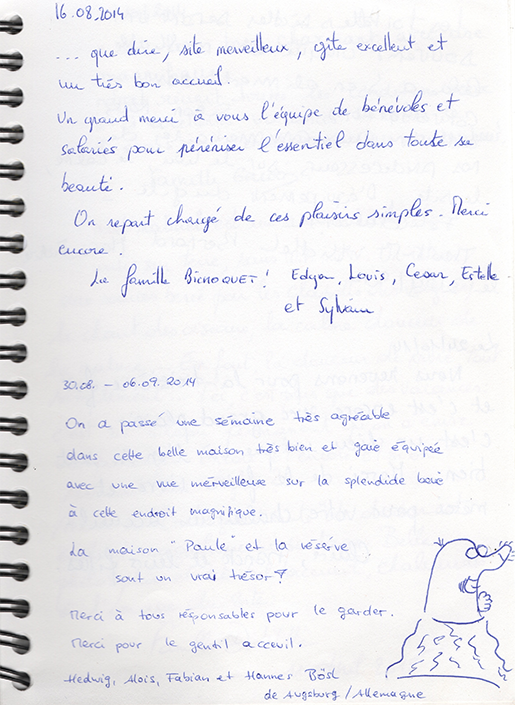 16.08.2014
... que dire, site merveilleux, gîte excellent et
un très bon accueil.
Un grand merci à vous l'équipe de bénévoles et
salariés pour péréniser l'essentiel dans toute sa
beauté.
On repart chargé de ces plaisirs simples. Merci
encore.
La famille BICHOQUET! Edgar, Louis, Cesar, Estelle
et Sylvain
30.08. – 06.09.2014
On a passé une semaine très agréable
dans cette belle maison très bien et gaie équipée
avec une vue merveilleuse sur la splendide baie
à cette endroit magnifique.
La maison "Paule" et la réserve
sont un vrai trésor!
Merci à tous résponsables pour le garder.
Merci pour le gentil acceuil.
Hedwig, Alois, Fabian et Hannes Bösl
de Augsburg / Allemagne